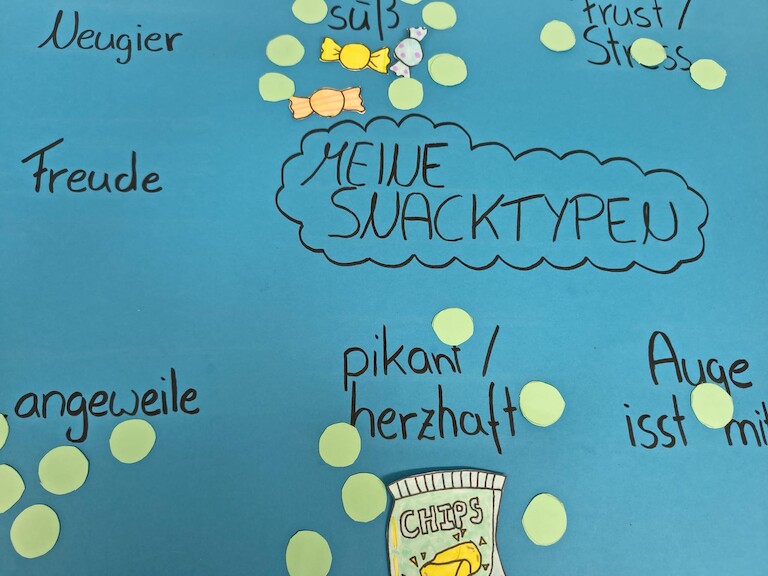 Neugier
süß
Frust /
Stress
Freude
MEINE
SNACKTYPEN
angeweile
pikant /
herzhaft
Auge
isst mit
CHIPS